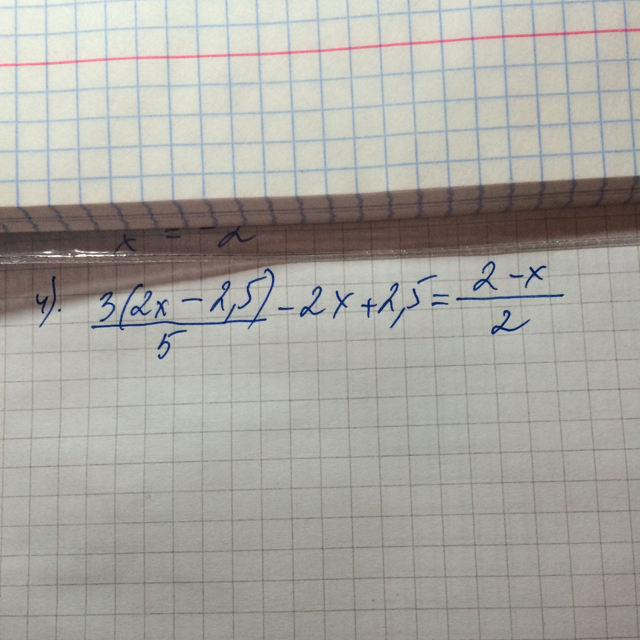 x = -2
4). 3(2x - 2,5)/5 - 2x + 2,5 = 2 - x/2